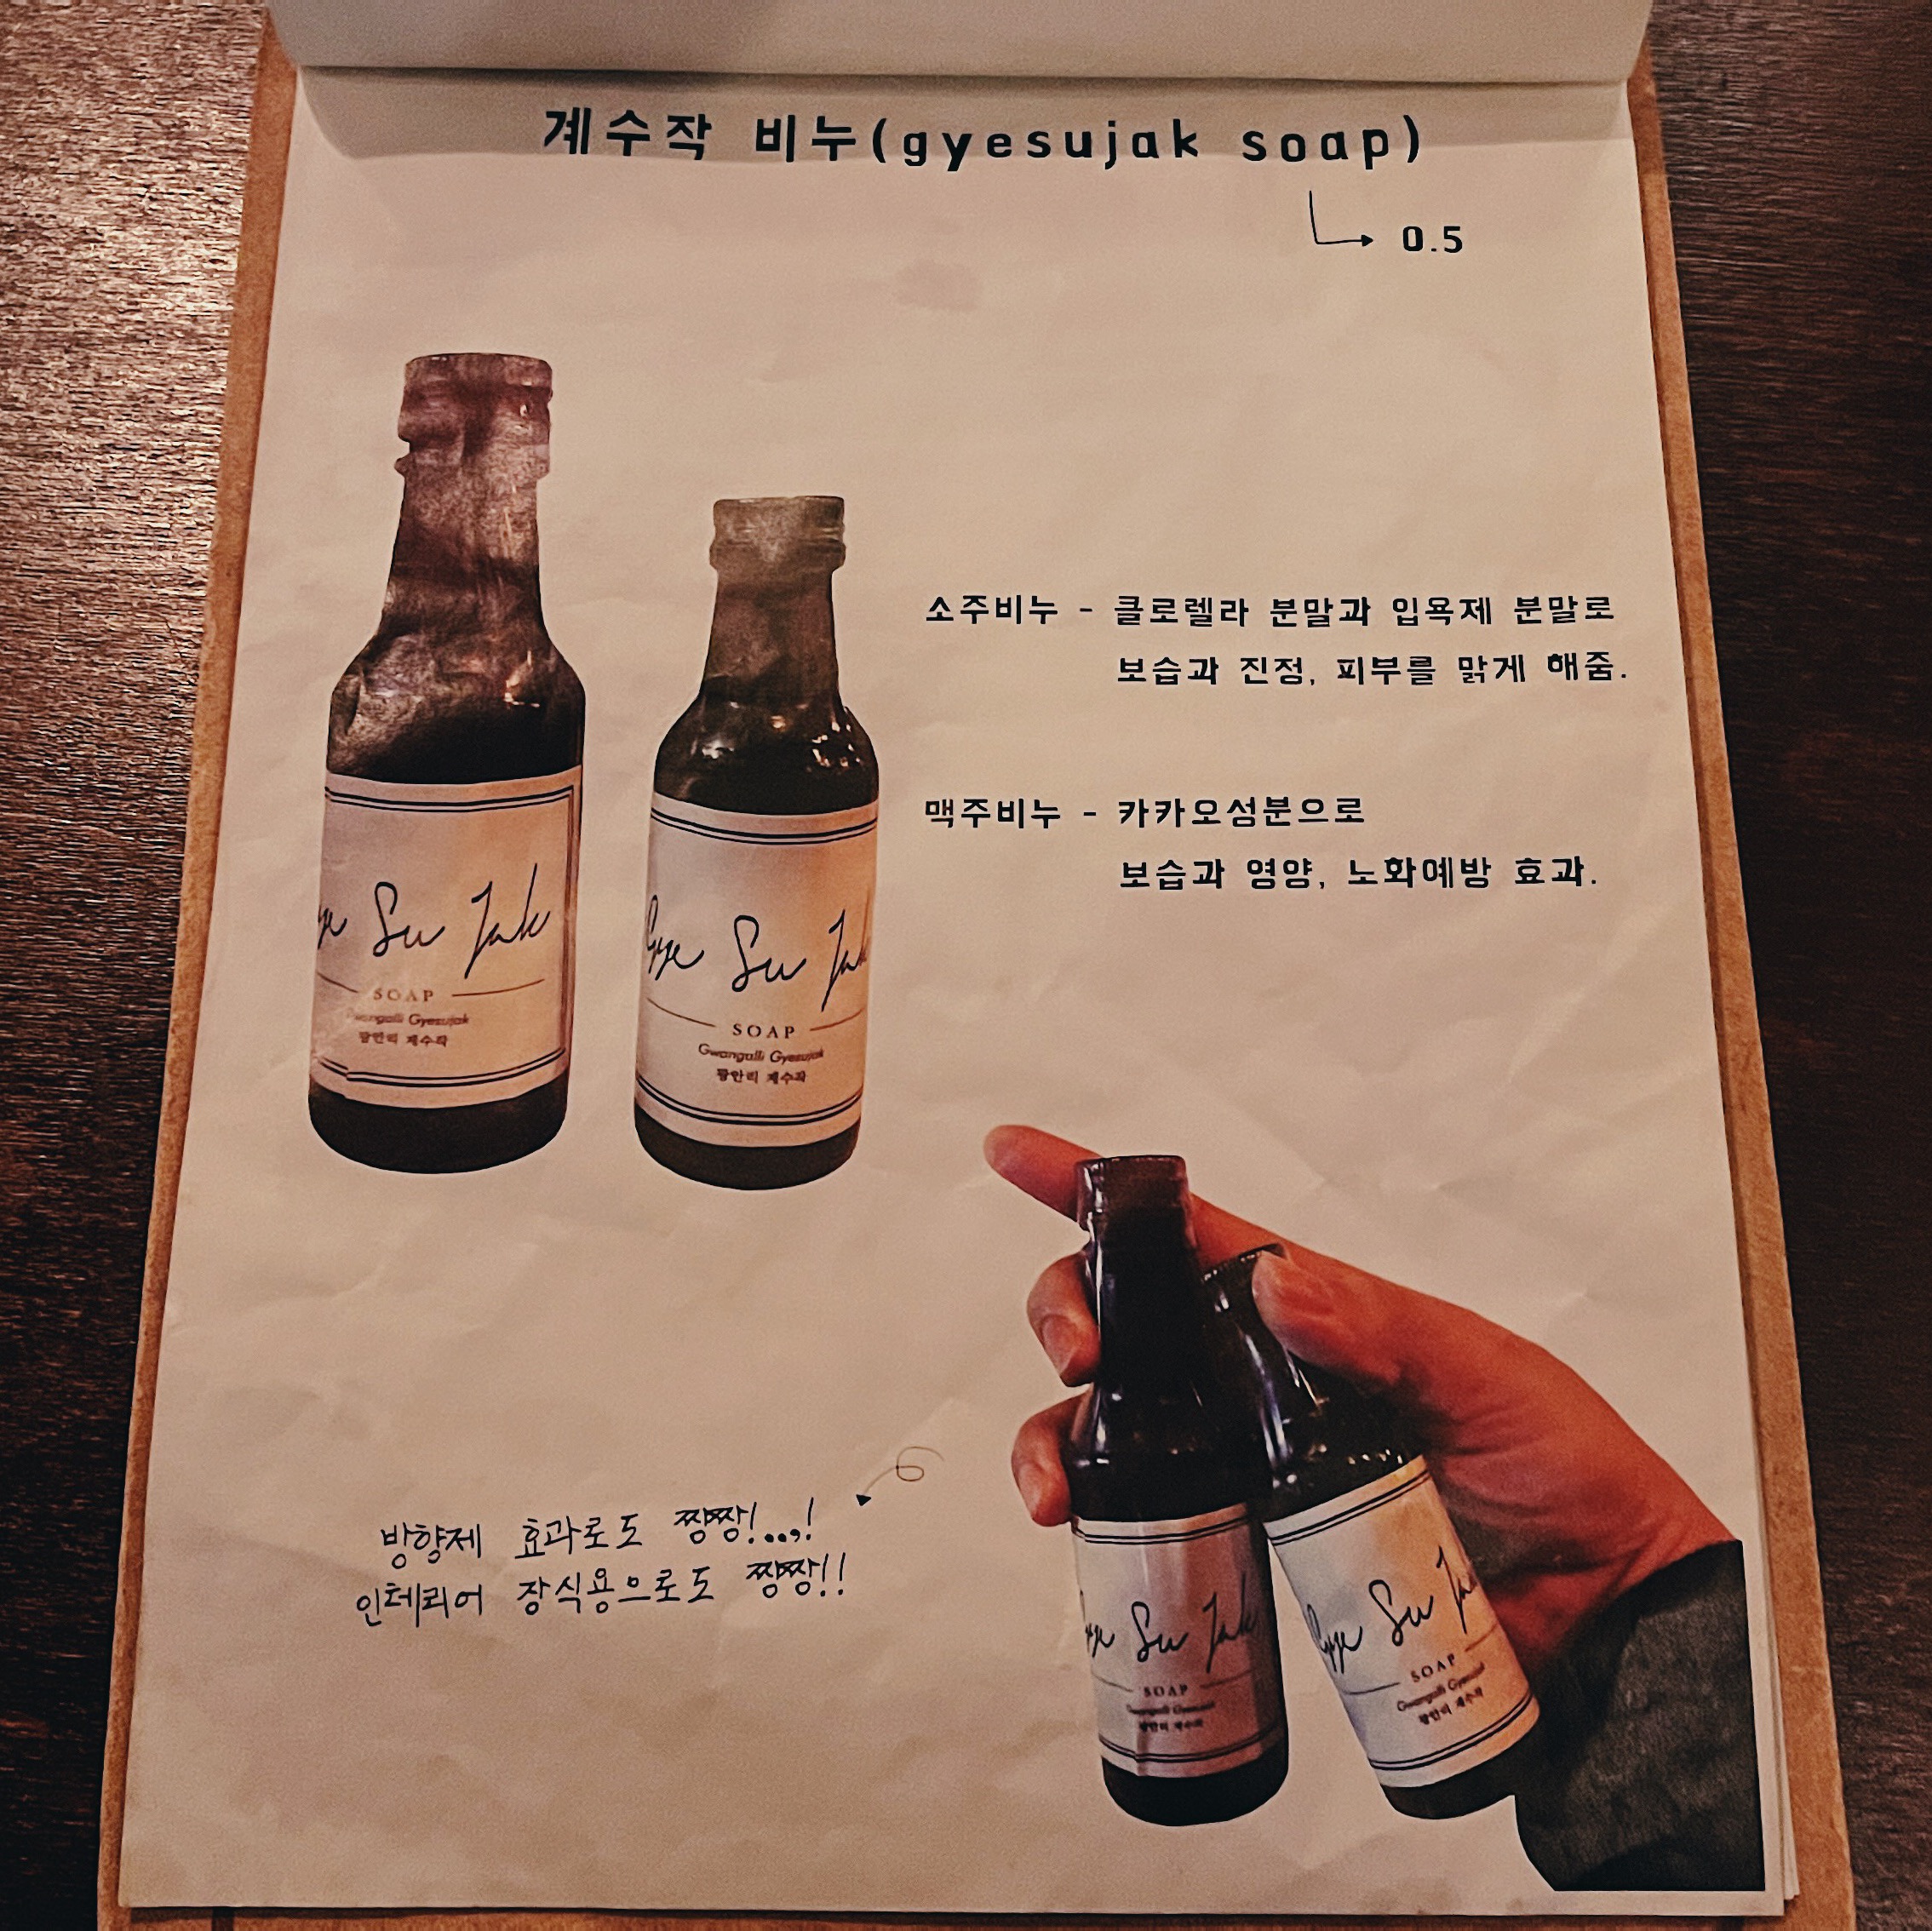 계수작 비누(gyesujak soap)
0.5
소주비누 - 클로렐라 분말과 입욕제 분말로
보습과 진정, 피부를 맑게 해줌.
맥주비누 - 카카오성분으로
보습과 영양, 노화예방 효과.
ye Su Jak
SOAP
Gwangalli Gyesujak
광안리 계수작
Gye Su Jak
SOAP
Gwangalli Gyesujak
광안리 계수작
방향제 효과로도 짱짱!..,!
인테리어 장식용으로도 짱짱!!
Gye Su Jak
SOAP
Gwangalli Gyesujak
광안리 계수작
Gye Su Ja
SOAP
Gwangalli Gyesujak
광안리 계수작